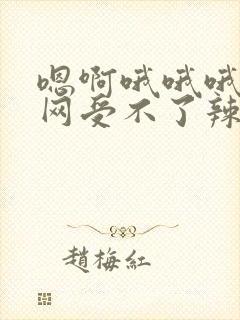 嗯啊哦哦哦
网受不了辣
趙梅紅